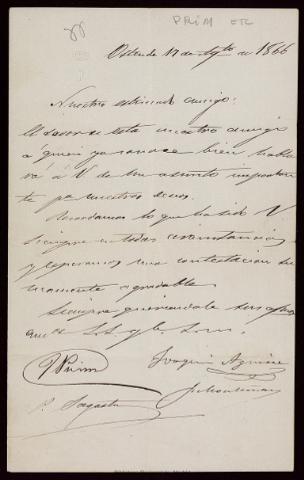 PRIM ETC
Ostende 17 de Agto de 1866
Nuestro estimado amigo:
El dador de esta nuestro amigo
a quien ya conoce bien habla
rá a V de un asunto importan
te pa nuestros
Recordamos lo que ha sido V
siempre en todas circunstancias
y esperamos una contestacion su
mamente agradable.
Siempre queriendole sus afmos
amos S.S. q b. s. m.
J Prim Joaquin Aguirre
P. Sagasta